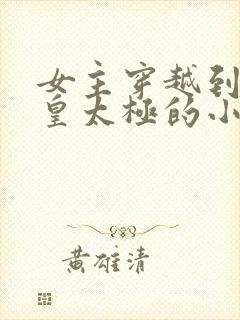 女主穿越到
皇太極的小
黄雄清